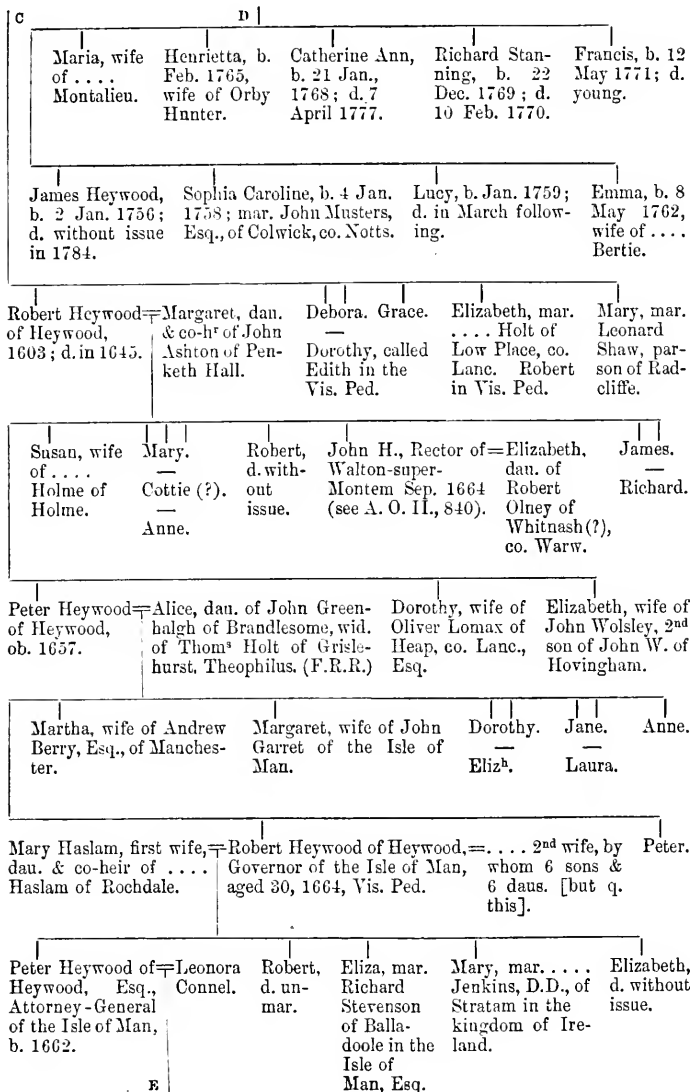 C
D
Maria, wife
of . . . .
Montalieu.
Henrietta, b.
Feb. 1765,
wife of Orby
Hunter.
Catherine Ann,
b. 21 Jan.,
1768; d. 7
April 1777.
Richard Stan-
ning, b. 22
Dec. 1769; d.
10 Feb. 1770.
Francis, b. 12
May 1771; d.
young.
James Heywood,
b. 2 Jan. 1756;
d. without issue
in 1784.
Sophia Caroline, b. 4 Jan.
1758; mar. John Musters,
Esq., of Colwick, co. Notts.
Lucy, b. Jan. 1759;
d. in March follow-
ing.
Emma, b. 8
May 1762,
wife of . . . .
Bertie.
Robert Heywood=
of Heywood,
1603; d. in 1645.
Margaret, dau.
& co-hʳ of John
Ashton of Pen-
keth Hall.
Debora. Grace.
—
Dorothy, called
Edith in the
Vis. Ped.
Elizabeth, mar.
. . . . Holt of
Low Place, co.
Lanc. Robert
in Vis. Ped.
Mary, mar.
Leonard
Shaw, par-
son of Rad-
cliffe.
Susan, wife
of . . . .
Holme of
Holme.
Mary.
—
Cottie (?).
—
Anne.
Robert,
d. with-
out
issue.
John H., Rector of=
Walton-super-
Montem Sep. 1664
(see A. O. II., 840).
Elizabeth,
dau. of
Robert
Olney of
Whitnash (?),
co. Warw.
James.
—
Richard.
Peter Heywood=
of Heywood,
ob. 1657.
Alice, dau. of John Green-
halgh of Brandlesome, wid.
of Thomˢ Holt of Grisle-
hurst. Theophilus. (F.R.R.)
Dorothy, wife of
Oliver Lomax of
Heap, co. Lanc.,
Esq.
Elizabeth, wife of
John Wolsley, 2ⁿᵈ
son of John W. of
Hovingham.
Martha, wife of Andrew
Berry, Esq., of Manches-
ter.
Margaret, wife of John
Garret of the Isle of
Man.
Dorothy.
—
Elizʰ.
Jane.
—
Laura.
Anne.
Mary Haslam, first wife,=
dau. & co-heir of . . . .
Haslam of Rochdale.
Robert Heywood of Heywood,=
Governor of the Isle of Man,
aged 30, 1664, Vis. Ped.
. . . . 2ⁿᵈ wife, by
whom 6 sons &
6 daus. [but q.
this].
Peter.
Peter Heywood of=
Heywood, Esq.,
Attorney-General
of the Isle of Man,
b. 1662.
Leonora
Connel.
Robert,
d. un-
mar.
Eliza, mar.
Richard
Stevenson
of Balla-
doole in the
Isle of
Man, Esq.
Mary, mar. . . . .
Jenkins, D.D., of
Stratam in the
kingdom of Ire-
land.
Elizabeth,
d. without
issue.
E